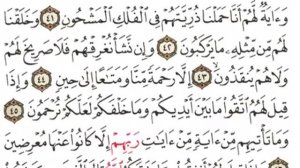 وَءَايَةٌ لَّهُمْ أَنَّا حَمَلْنَا ذُرِّيَّتَهُمْ فِى ٱلْفُلْكِ ٱلْمَشْحُونِ ٤١ وَخَلَقْنَا
لَهُم مِّن مِّثْلِهِۦ مَا يَرْكَبُونَ ٤٢ وَإِن نَّشَأْ نُغْرِقْهُمْ فَلَا صَرِيخَ لَهُمْ
وَلَا هُمْ يُنقَذُونَ ٤٣ إِلَّا رَحْمَةً مِّنَّا وَمَتَٰعًا إِلَىٰ حِينٍ ٤٤ وَإِذَا
قِيلَ لَهُمُ ٱتَّقُوا۟ مَا بَيْنَ أَيْدِيكُمْ وَمَا خَلْفَكُمْ لَعَلَّكُمْ تُرْحَمُونَ ٤٥
وَمَا تَأْتِيهِم مِّنْ ءَايَةٍ مِّنْ ءَايَٰتِ رَبِّهِمْ إِلَّا كَانُوا۟ عَنْهَا مُعْرِضِينَ